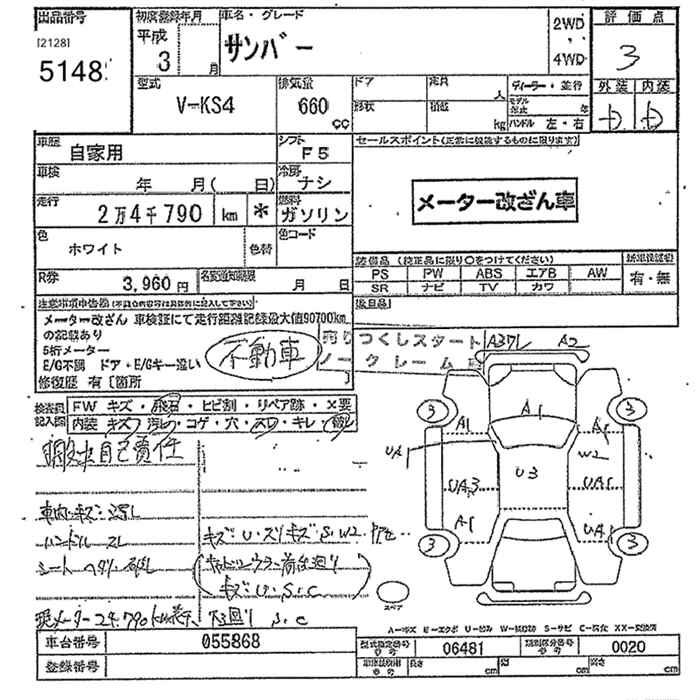 出品番号
[2128]
5148
初度登録年月
平成
3 月
車名・グレード
サンバー
2WD
4WD
評価点
3
外装 内装
型式
V-KS4
排気量
660 cc
ドア
定員
人
形状
積載
kg
ディーラー・並行
モデル年式 年
ハンドル 左・右
車歴
自家用
シフト
F5
セールスポイント(正常に機能するものに限ります)
車検
年 月( 日)
冷房
ナシ
走行
2万4千790 km *
燃料
ガソリン
メーター改ざん車
色
ホワイト
色替
色コード
装備品 (純正品に限り○をつけてください)
新車保証書
PS PW ABS エアB AW
SR ナビ TV カワ
有・無
R券
3,960円
名変通知期限
月 日
欠品目
注意事項申告欄
メーター改ざん 車検証にて走行距離記録最大値90700km
の記載あり
5桁メーター
E/G不調 ドア・E/Gキー違い
不動車
売りつくしスタート
ノークレーム
修復歴 有〔箇所 〕
検査員記入欄
FW キズ・飛石・ヒビ割・リペア跡・X要
内装 キズ・汚れ・コゲ・穴・スレ・キレ・破れ
自己責任
車内キズ・汚れ
ハンドル スレ
キズ:U・スリキズ S・W2
キズ:U・S・C
現メーター24,790km表示、下回り S,C
A37L A2
3 3
A1 A1
UA1 W2
U3
UA3 UA1
A1 UA1
3 3
スペア
A-キズ E-エクボ U-凹み W-補修跡 S-サビ C-腐食 XX-交換済
車台番号
055868
型式指定番号
06481
類別区分番号
0020
登録番号
長さ cm
幅 cm
高さ cm